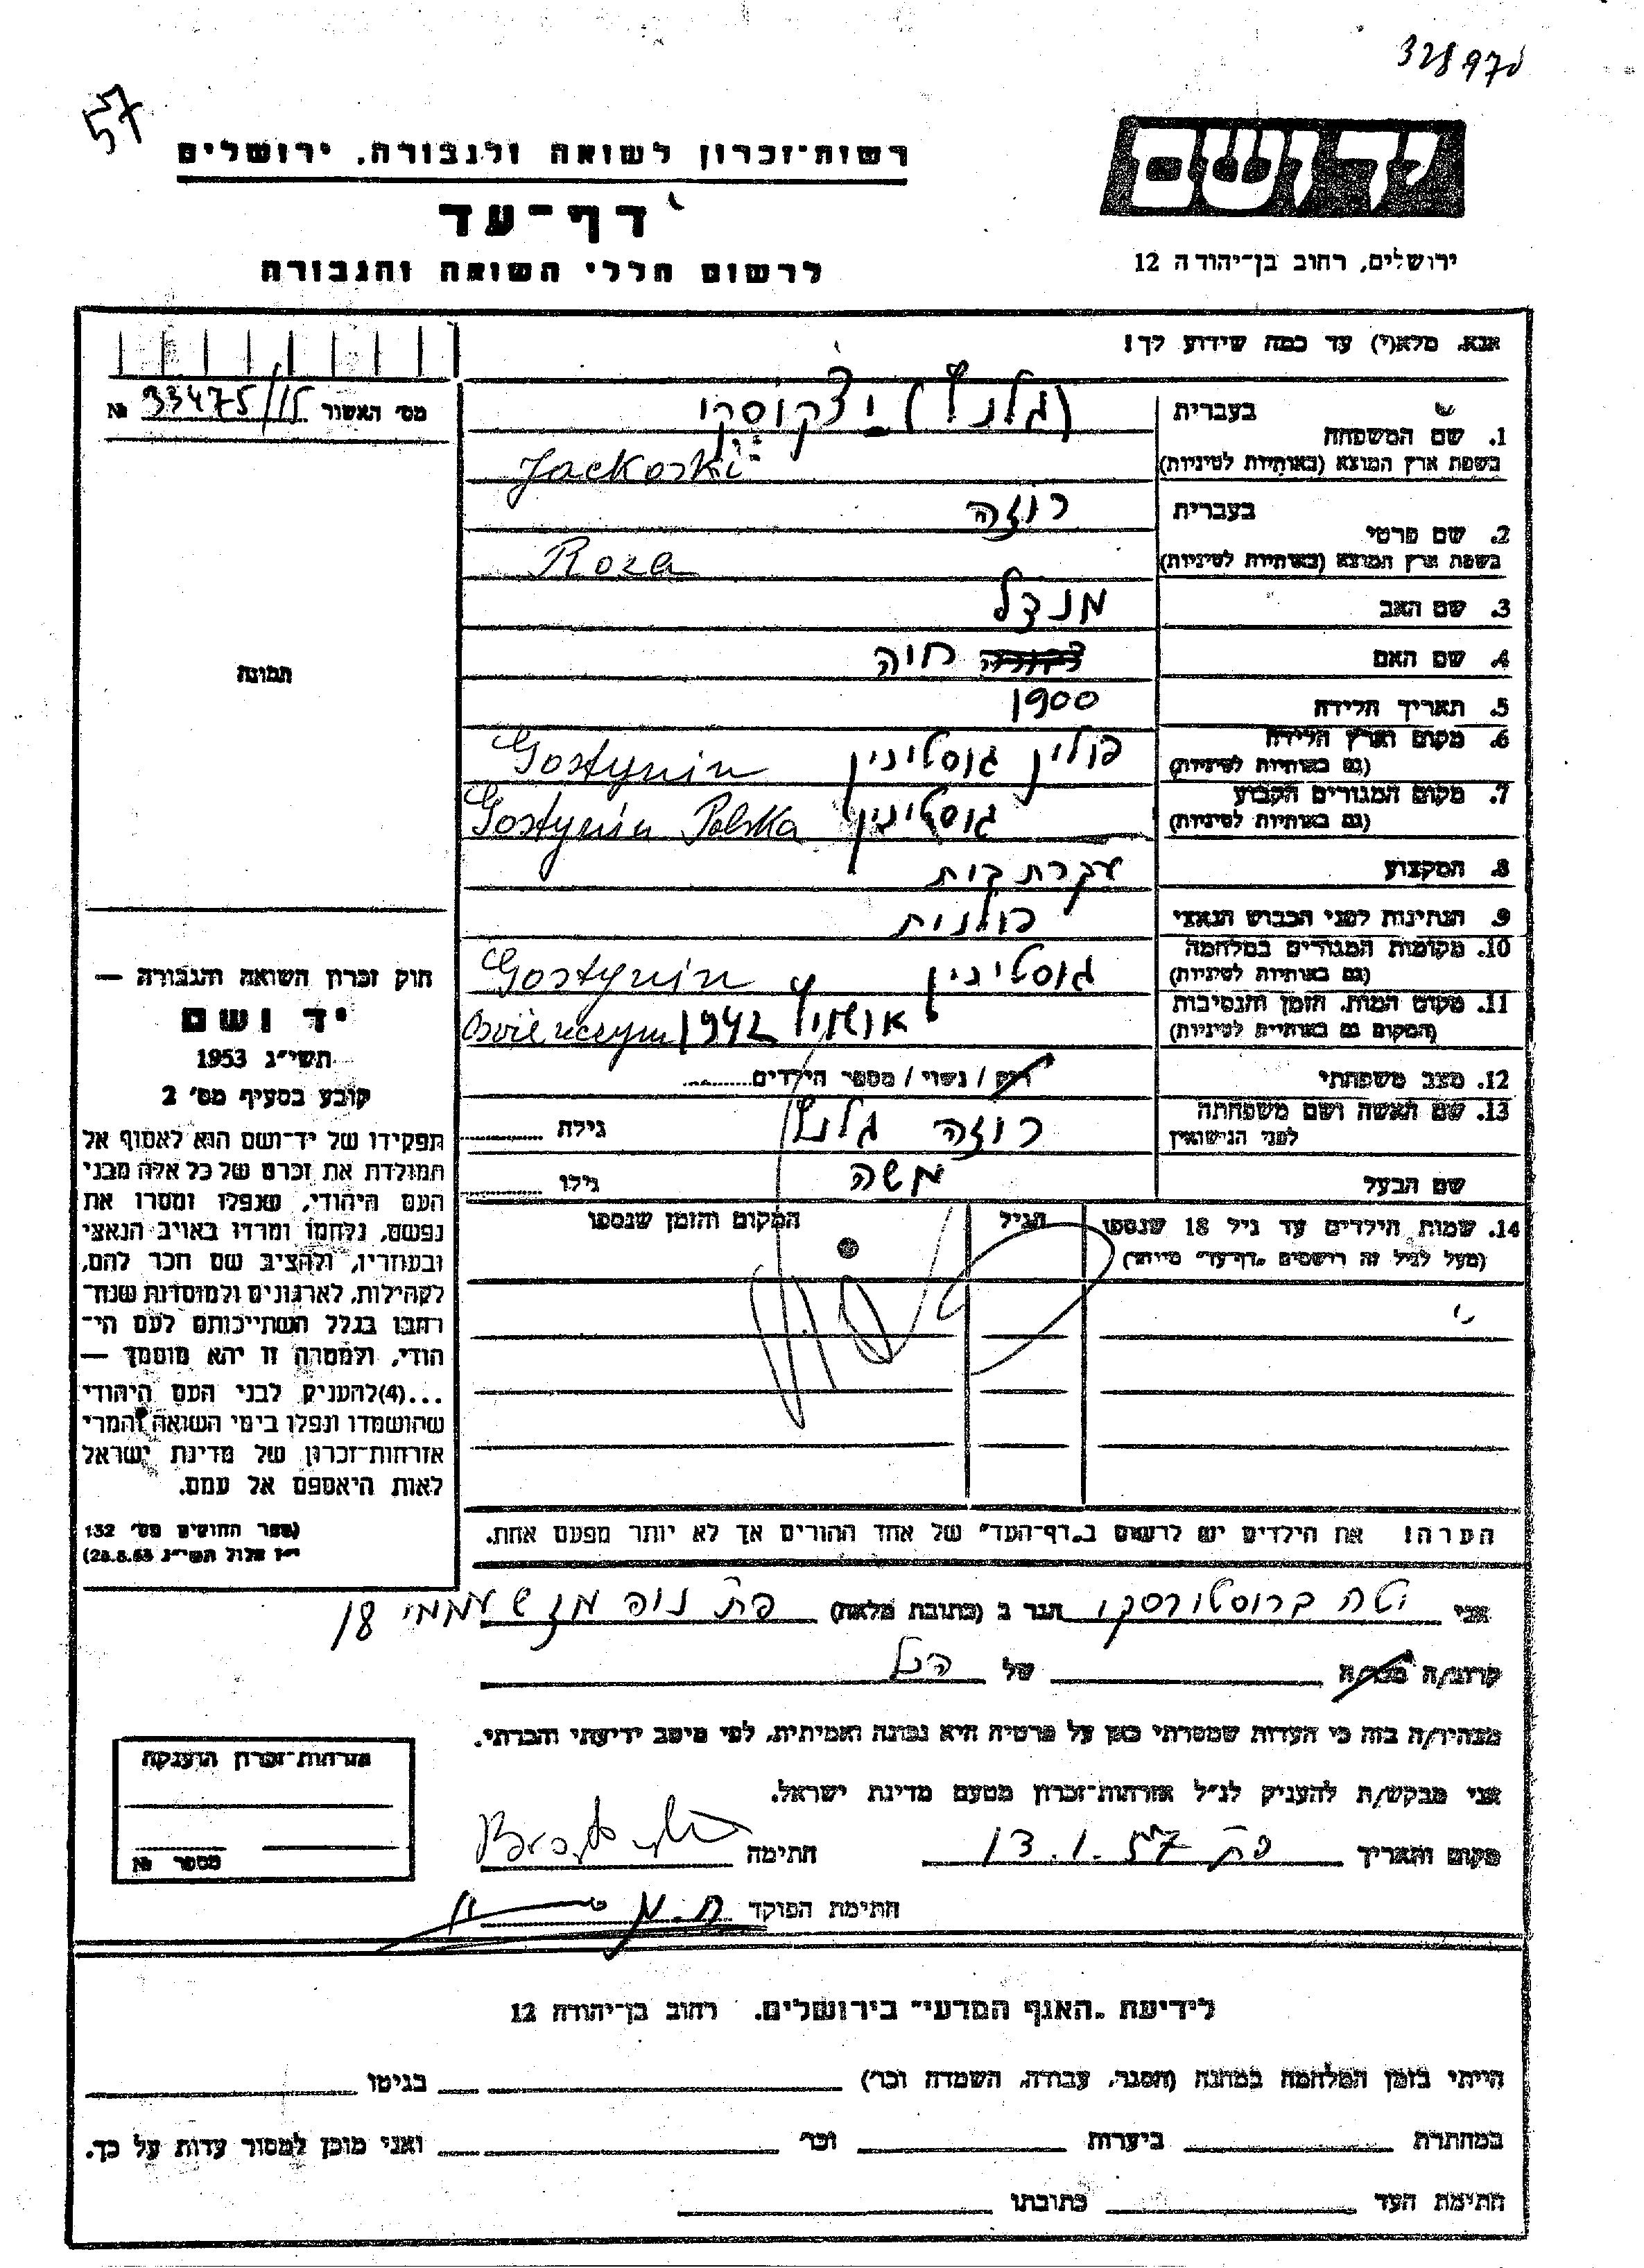 328970
57
יד ושם
רשות־זכרון לשואה ולגבורה, ירושלים
דף־עד
לרשום חללי השואה והגבורה
ירושלים, רחוב בן־יהודה 12
אנא, מלא(י) עד כמה שידוע לך!
מס׳ האשור 33475/15 №
1. שם המשפחה בעברית (גלנץ) יצקוסקי
בשפת ארץ המוצא (באותיות לטיניות) Jackoski
2. שם פרטי בעברית רוזה
בשפת ארץ המוצא (באותיות לטיניות) Roza
3. שם האב מנדל
4. שם האם חיה
5. תאריך הלידה 1900
6. מקום וארץ הלידה (גם באותיות לטיניות) פולין גוסטינין Gostynin
7. מקום המגורים הקבוע (גם באותיות לטיניות) גוסטינין Gostynin Polska
8. המקצוע עקרת בית
9. הנתינות לפני הכבוש הנאצי פולנית
10. מקומות המגורים במלחמה (גם באותיות לטיניות) גוסטינין Gostynin
11. מקום המות, הזמן והנסיבות (המקום גם באותיות לטיניות) 1942
12. מצב משפחתי רוק / נשוי / מספר הילדים
13. שם האשה ושם משפחתה לפני הנישואין רוזה גלנץ גילה
שם הבעל משה גילו
14. שמות הילדים עד גיל 18 שנספו הגיל המקום והזמן שנספו
(מעל לגיל זה רושמים "דף־עד" מיוחד)
תמונה
חוק זכרון השואה והגבורה —
יד ושם
תשי״ג 1953
קובע בסעיף מס׳ 2
תפקידו של יד־ושם הוא לאסוף אל
המולדת את זכרם של כל אלה מבני
העם היהודי, שנפלו ומסרו את
נפשם, נלחמו ומרדו באויב הנאצי
ובעוזריו, ולהציב שם וזכר להם,
לקהילות, לארגונים ולמוסדות שנח־
רבו בגלל השתייכותם לעם הי־
הודי, ולמטרה זו יהא מוסמך —
...(4)להעניק לבני העם היהודי
שהושמדו ונפלו בימי השואה והמרי
אזרחות־זכרון של מדינת ישראל
לאות היאספם אל עמם.
(ספר החוקים מס׳ 132
י״ז אלול תשי״ג 28.8.53)
הערה! את הילדים יש לרשום ב"דף־העד" של אחד ההורים אך לא יותר מפעם אחת.
אני יטה ברוסטורסקי הגר ב (כתובת מלאה) פ״ת נוה עממי 18
קרוב/ה מכר/ה של הנ״ל
מצהיר/ה בזה כי העדות שמסרתי כאן על פרטיה היא נכונה ואמיתית, לפי מיטב ידיעתי והכרתי.
אני מבקש/ת להעניק לנ״ל אזרחות־זכרון מטעם מדינת ישראל.
מקום ותאריך פ״ת 13.1.57 חתימה
חתימת הפוקד
אזרחות־זכרון הוענקה
מספר №
לידיעת "האגף המדעי" בירושלים. רחוב בן־יהודה 12
הייתי בזמן המלחמה במחנה (הסגר, עבודה, השמדה וכר׳) בגיטו
במחתרת ביערות וכר׳ ואני מוכן למסור עדות על כך.
חתימת העד כתובתו